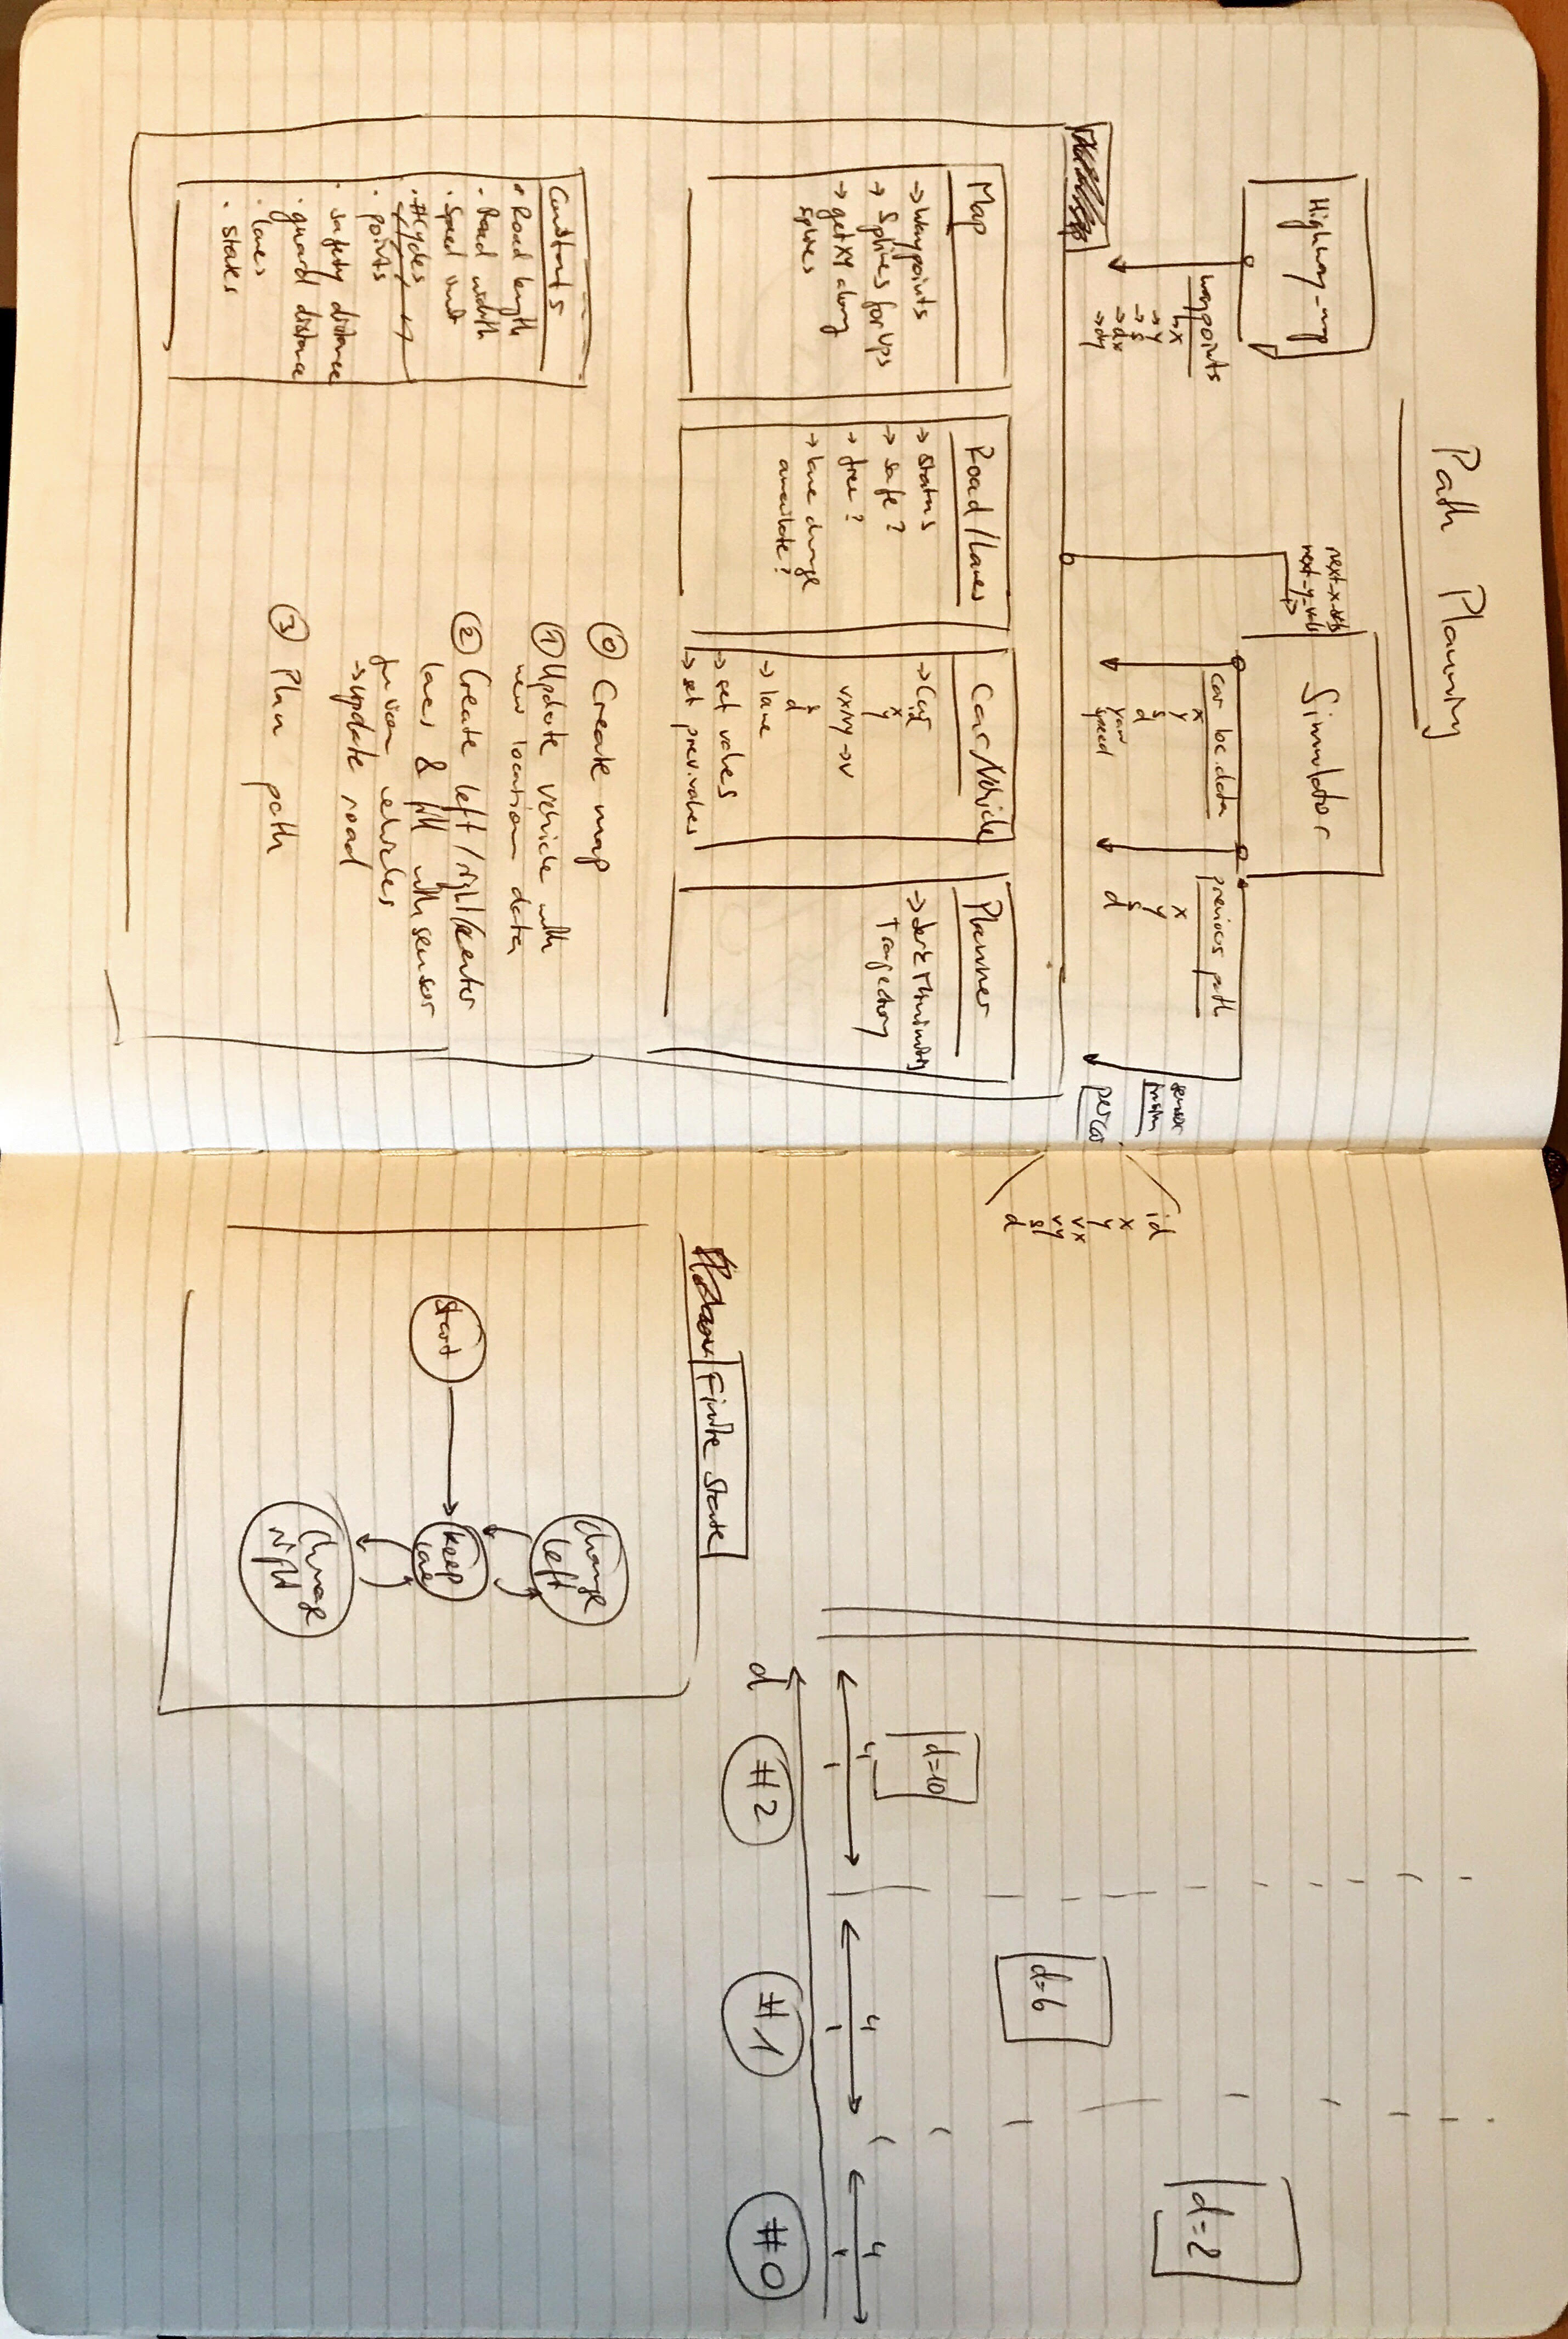 Path Planning
Highway_map
next_x_vals
next_y_vals
Simulator
waypoints
→x
→y
→s
→dx
→dy
car loc.data
x
y
s
d
yaw
speed
previous path
x
y
s
d
sensor
fusion
per car
id
x
y
vx
vy
s
d
Map
→ Waypoints
→ Splines for wps
→ getXY along
splines
Road/Lanes
→ status
→ safe?
→ free?
→ lane change
available?
Car/Vehicle
→ Car
id
x
y
vx/vy → v
s
d
→ lane
→ set values
→ set prev.values
Planner
→
Trajectory
Constants
• Road length
• Road width
• Speed limit
• #Cycles
• points
• safety distance
• guard distance
• lanes
• states
⓪ Create map
① Update vehicle with
new location data
② Create left/right/center
lanes & fill with sensor
fusion vehicles
→ update road
③ Plan path
d=2
d=6
d=10
4
4
4
d
#2
#1
#0
Finite State
change
left
Start
keep
lane
change
right